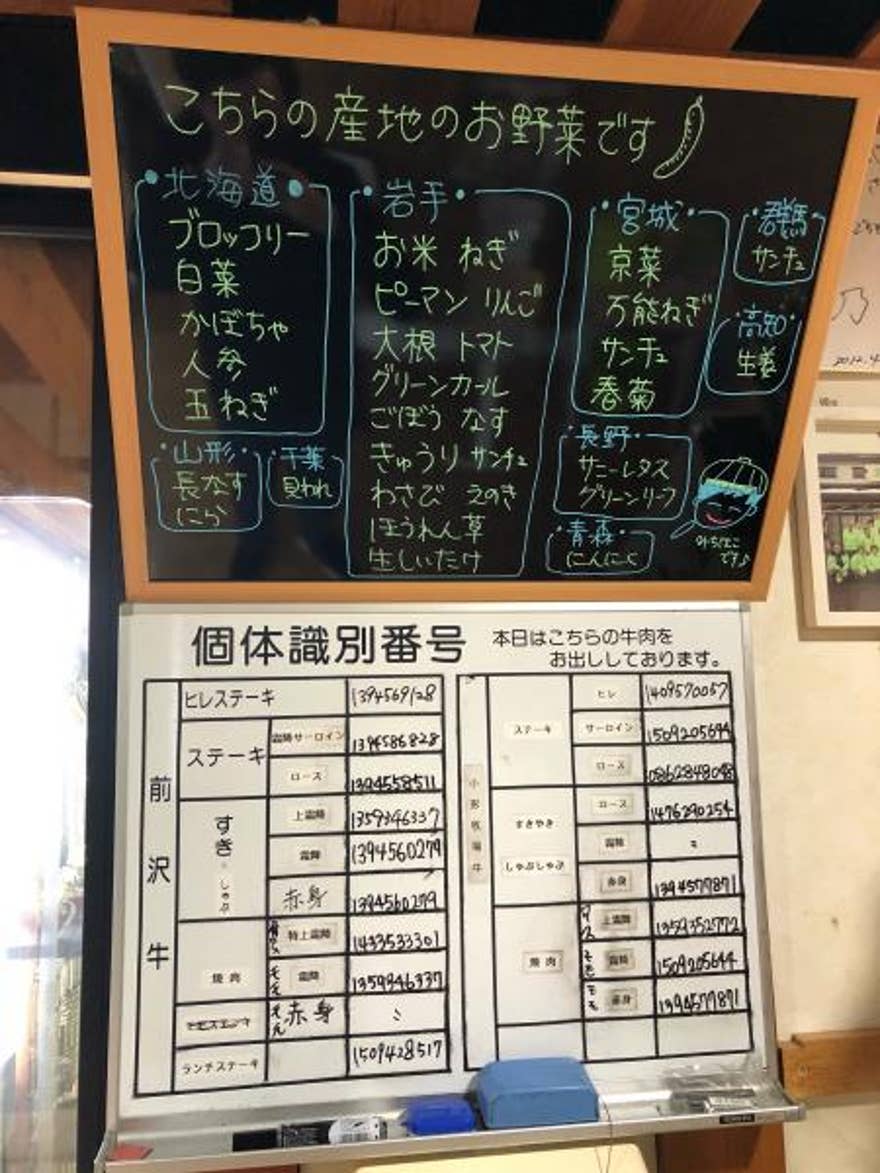 こちらの産地のお野菜です
北海道
ブロッコリー
白菜
かぼちゃ
人参
玉ねぎ
山形
長なす
にら
千葉
貝われ
岩手
お米 ねぎ
ピーマン りんご
大根 トマト
グリーンカール
ごぼう なす
きゅうり サンチュ
わさび えのき
ほうれん草
生しいたけ
宮城
京菜
万能ねぎ
サンチュ
春菊
群馬
サンチュ
高知
生姜
長野
サニーレタス
グリーンリーフ
青森
にんにく
です♪
個体識別番号
本日はこちらの牛肉を
お出ししております。
前沢牛
ヒレステーキ 1394569128
ステーキ
霜降サーロイン 1394586828
ロース 1394558511
すき・しゃぶ
上霜降 1359346337
霜降 1394560279
赤身 1394560279
焼肉
特上霜降 1433533301
モモ 霜降 1359346337
モモ 赤身 〃
ランチステーキ 1509428517
小形牧場牛
ステーキ
ヒレ 1409570057
サーロイン 1509205644
ロース 0862848048
すきやき
しゃぶしゃぶ
ロース 1476290254
霜降 〃
赤身 1394577871
焼肉
上霜降 1359352772
モモ 霜降 1509205644
モモ 赤身 1394577871
乃
2012.4